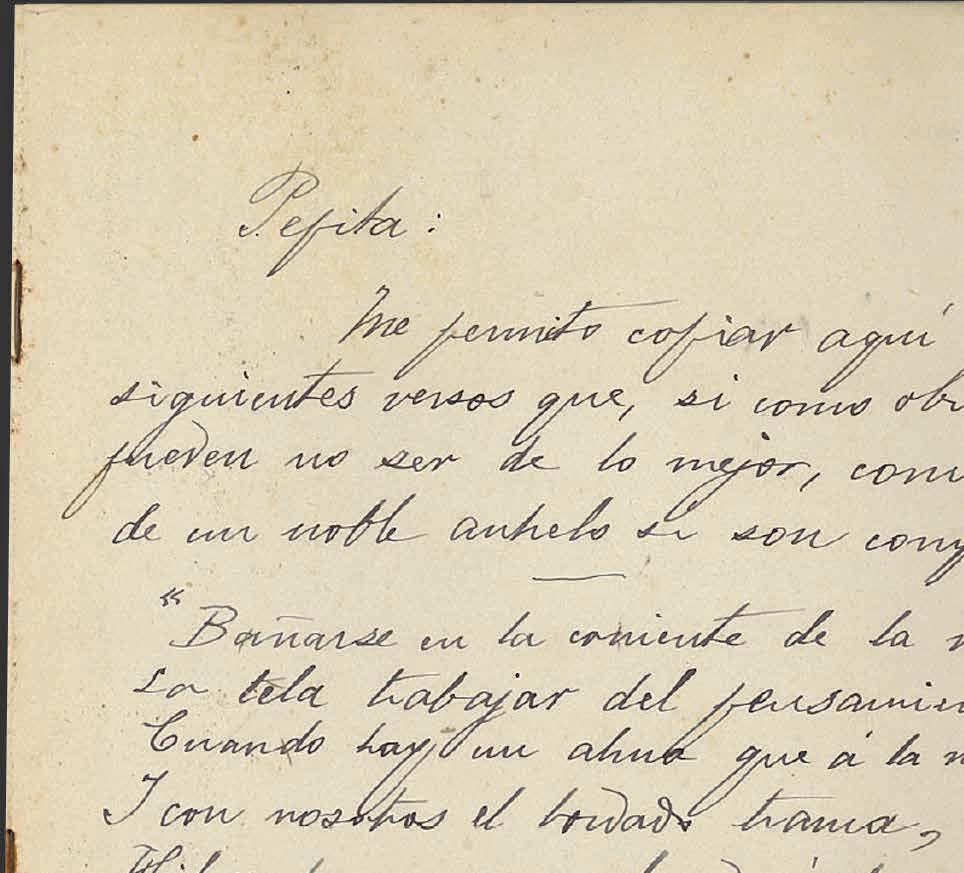 Pepita:
Me permito copiar aquí
siguientes versos que, si como
pueden no ser de lo mejor,
de un noble anhelo si son
"Bañarse en la corriente de la
La tela trabajar del
Cuando hay un alma que á la
I con nosotros el bordado trama,